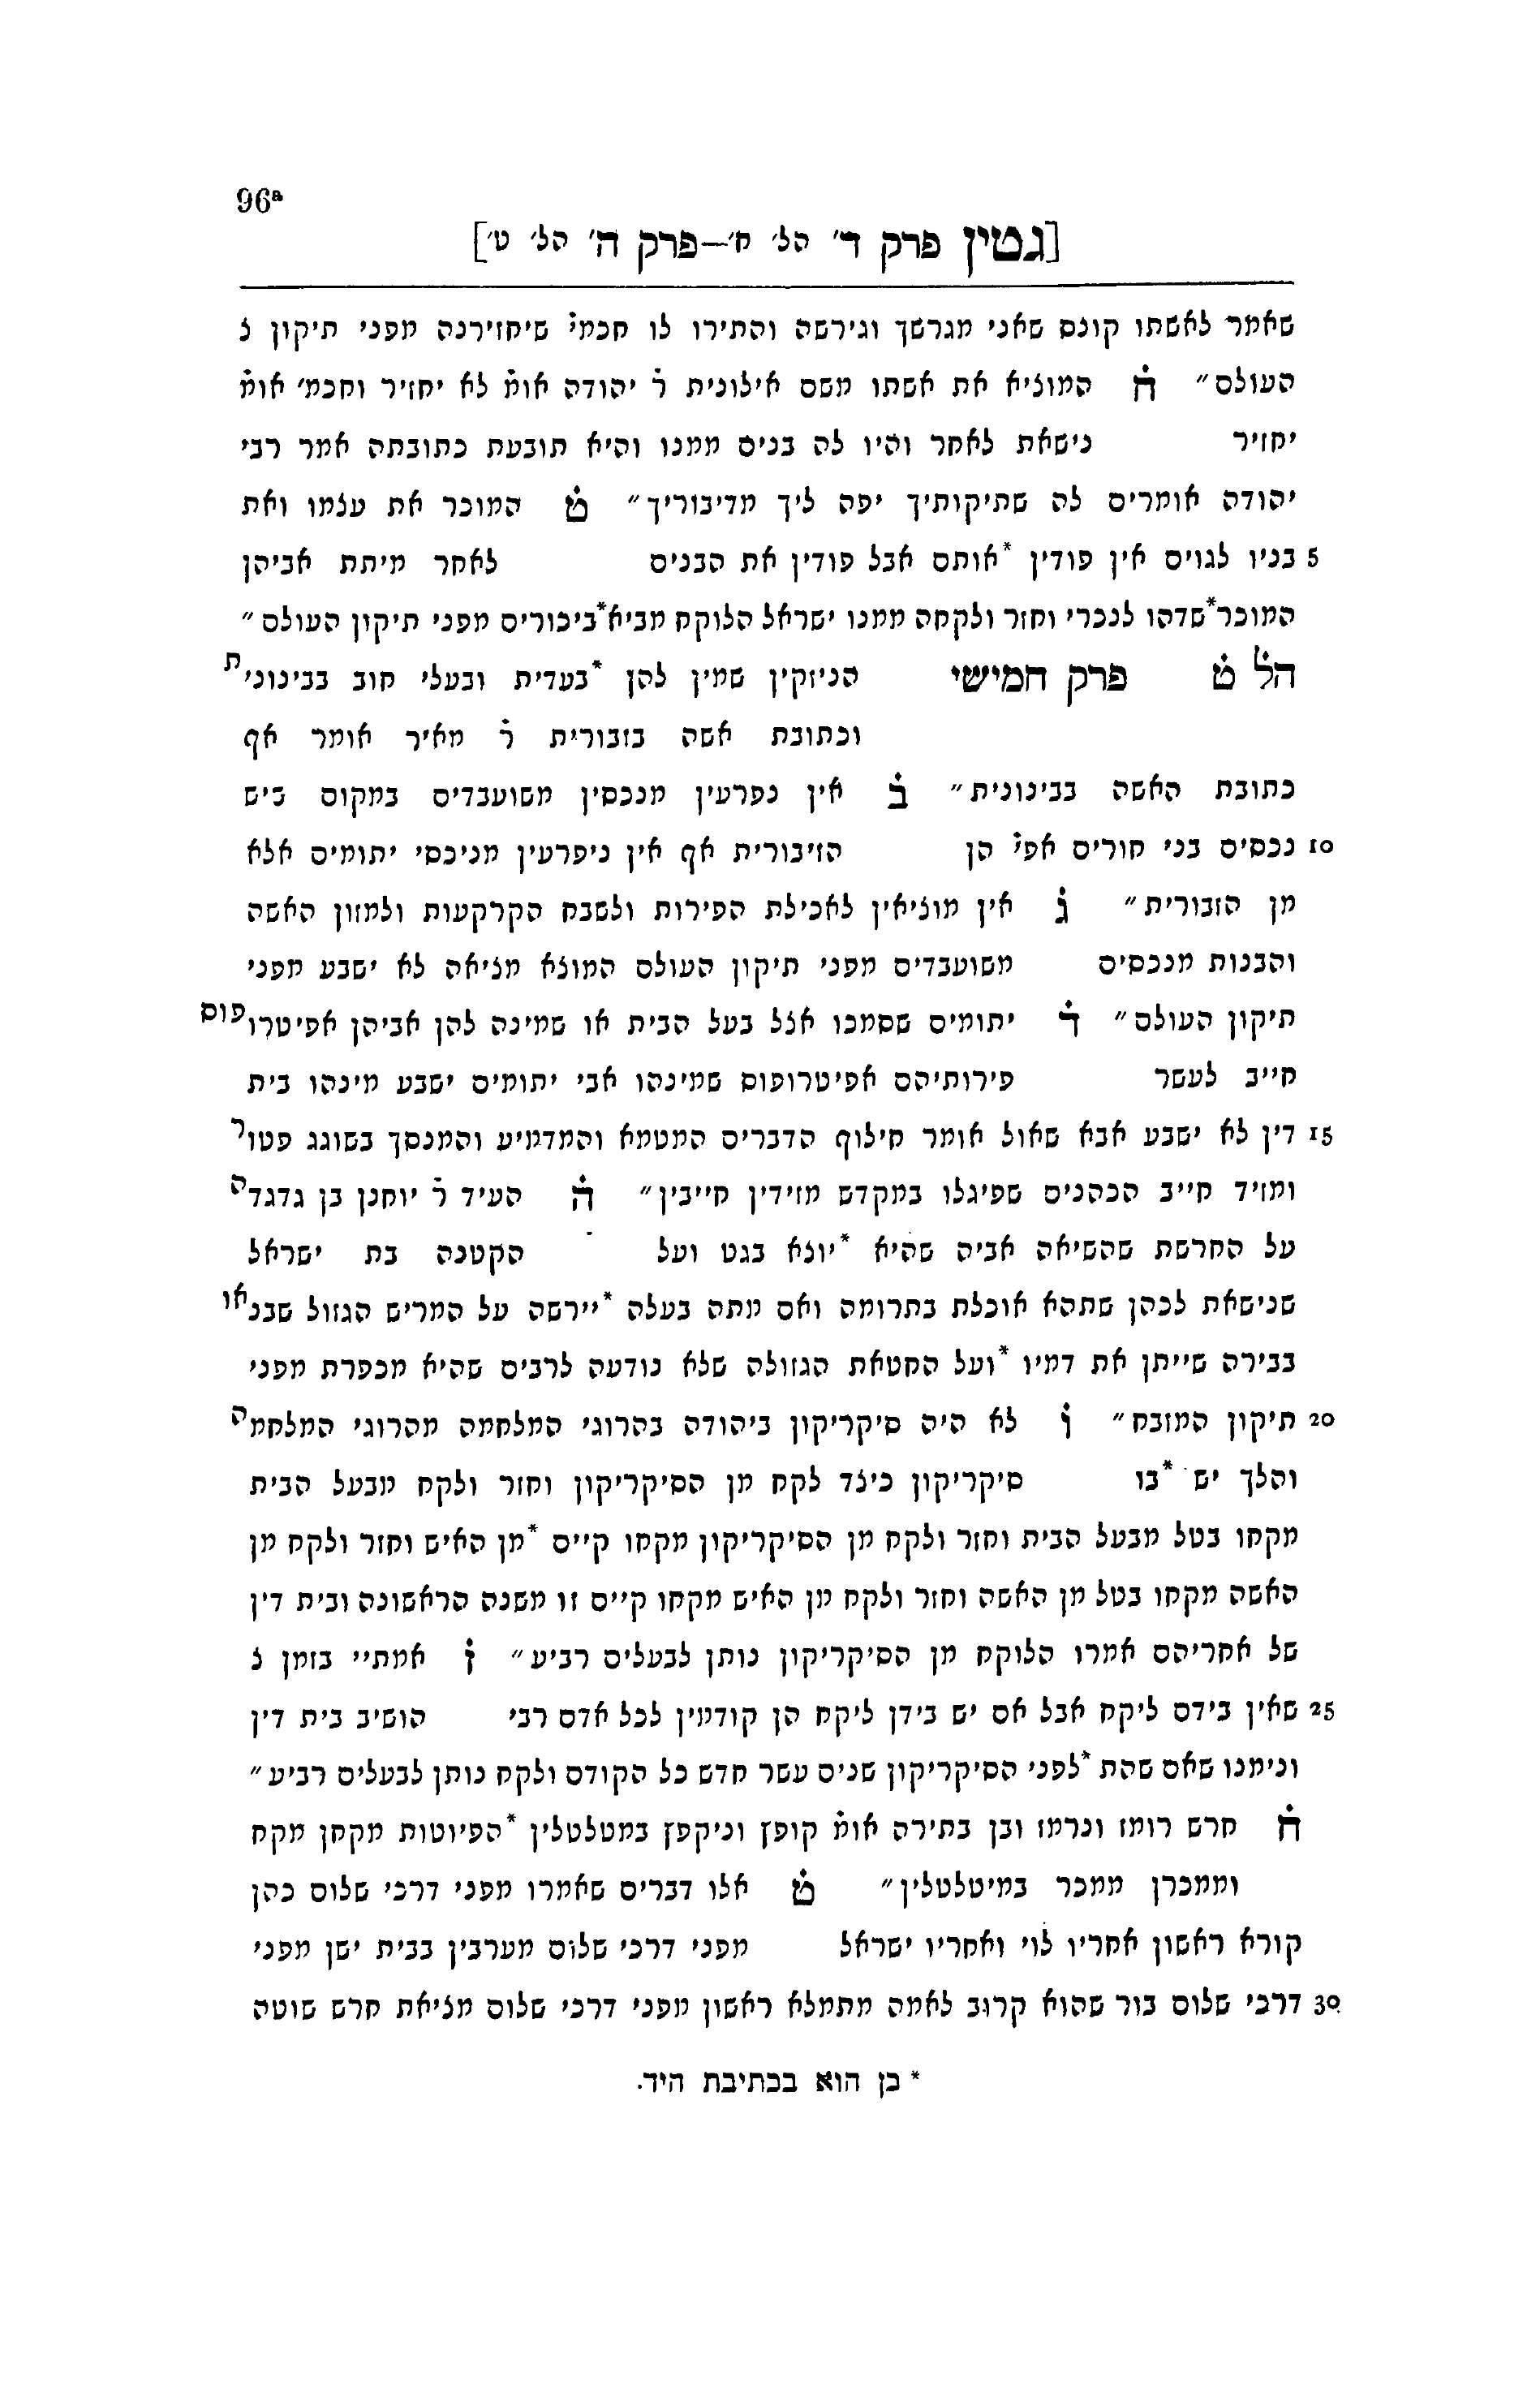 96ª
[גטין פרק ד׳ הל׳ ח׳—פרק ה׳ הל׳ ט׳]
שאמר לאשתו קונס שאני מגרשך וגירשה והתירו לו חכמי̇ שיחזירנה מפני תיקון צ
העולם״ ח̇ המוציא את אשתו משם אילונית ר̇ יהודה אומ̇ לא יחזיר וחכמ׳ אומ̇
יחזיר נישאת לאחר והיו לה בנים ממנו והיא תובעת כתובתה אמר רבי
יהודה אומרים לה שתיקותיך יפה ליך מדיבוריך״ ט̇ המוכר את עצמו ואת
5 בניו לגוים אין פודין *אותם אבל פודין את הבנים לאחר מיתת אביהן
המוכר*שדהו לנכרי וחזר ולקחה ממנו ישראל הלוקח מביא*ביכורים מפני תיקון העולם״
הל̇ ט̇ פרק חמישי הניזקין שמין להן *בעדית ובעלי חוב בבינונית
וכתובת אשה בזבורית ר̇ מאיר אומר אף
כתובת האשה בבינונית״ ב̇ אין נפרעין מנכסין משועבדים במקום ביש
10 נכסים בני חורים אפי̇ הן הזיבורית אף אין ניפרעין מניכסי יתומים אלא
מן הזבורית״ ג̇ אין מוציאין לאכילת הפירות ולשבח הקרקעות ולמזון האשה
והבנות מנכסים משועבדים מפני תיקון העולם המוצא מציאה לא ישבע מפני
תיקון העולם״ ד̇ יתומים שסמכו אצל בעל הבית או שמינה להן אביהן אפיטרופוס
חייב לעשר פירותיהם אפיטרופוס שמינהו אבי יתומים ישבע מינהו בית
15 דין לא ישבע אבא שאול אומר חילוף הדברים המטמא והמדמיע והמנסך בשוגג פטור
ומזיד חייב הכהנים שפיגלו במקדש מזידין חייבין״ ה̇ העיד ר̇ יוחנן בן גדגדה
על החרשת שהשיאה אביה שהיא *יוצא בגט ועל הקטנה בת ישראל
שנישאת לכהן שתהא אוכלת בתרומה ואם מתה בעלה *יירשה על המריש הגזול שבנאו
בבירה שייתן את דמיו *ועל החטאת הגזולה שלא נודעה לרבים שהיא מכפרת מפני
20 תיקון המזבח״ ו̇ לא היה סיקריקון ביהודה בהרוגי המלחמה מהרוגי המלחמה
והלך יש *בו סיקריקון כיצד לקח מן הסיקריקון וחזר ולקח מבעל הבית
מקחו בטל מבעל הבית וחזר ולקח מן הסיקריקון מקחו קיים *מן האיש וחזר ולקח מן
האשה מקחו בטל מן האשה וחזר ולקח מן האיש מקחו קיים זו משנה הראשונה ובית דין
של אחריהם אמרו הלוקח מן הסיקריקון נותן לבעלים רביע״ ז̇ אמתיי בזמן צ
25 שאין בידם ליקח אבל אם יש בידן ליקח הן קודמין לכל אדם רבי הושיב בית דין
ונימנו שאם שהת *לפני הסיקריקון שנים עשר חדש כל הקודם ולקח נותן לבעלים רביע״
ח̇ חרש רומז ונרמז ובן בתירה אומ̇ קופץ וניקפץ במטלטלין *הפיוטות מקחן מקח
וממכרן ממכר במיטלטלין״ ט̇ אלו דברים שאמרו מפני דרכי שלום כהן
קורא ראשון אחריו לוי ואחריו ישראל מפני דרכי שלום מערבין בבית ישן מפני
30 דרכי שלום בור שהוא קרוב לאמה מתמלא ראשון מפני דרכי שלום מציאת חרש שוטה
* כן הוא בכתיבת היד.